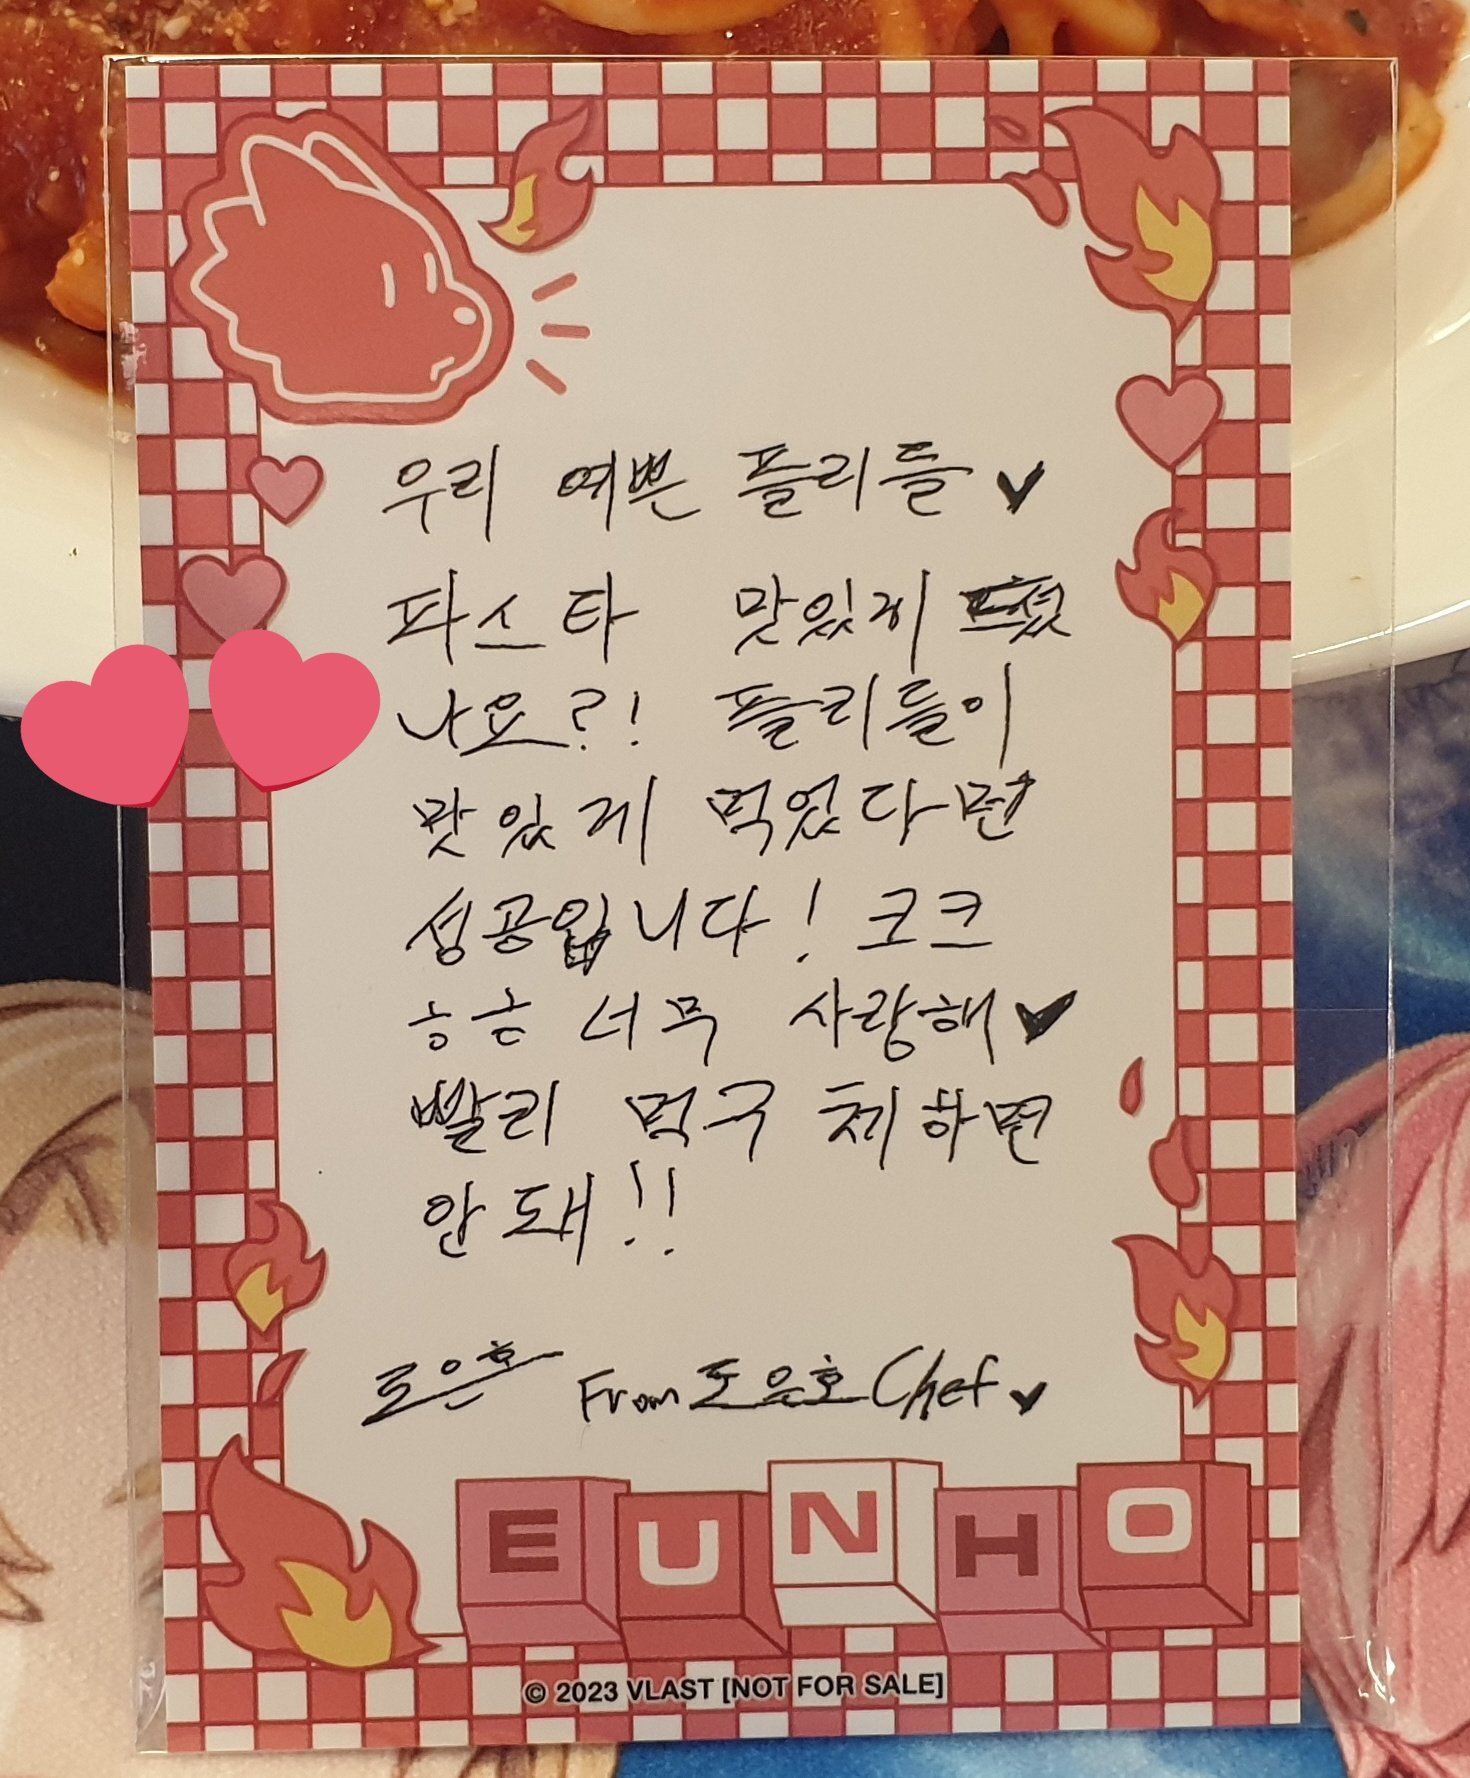 우리 예쁜 플리들♥
파스타 맛있게 드셨
나요?! 플리들이
맛있게 먹었다면
성공입니다! 크크
흐흐 너무 사랑해♥
빨리 먹구 체하면
안돼!!
도은호 From 도은호 Chef♥
EUNHO
© 2023 VLAST [NOT FOR SALE]